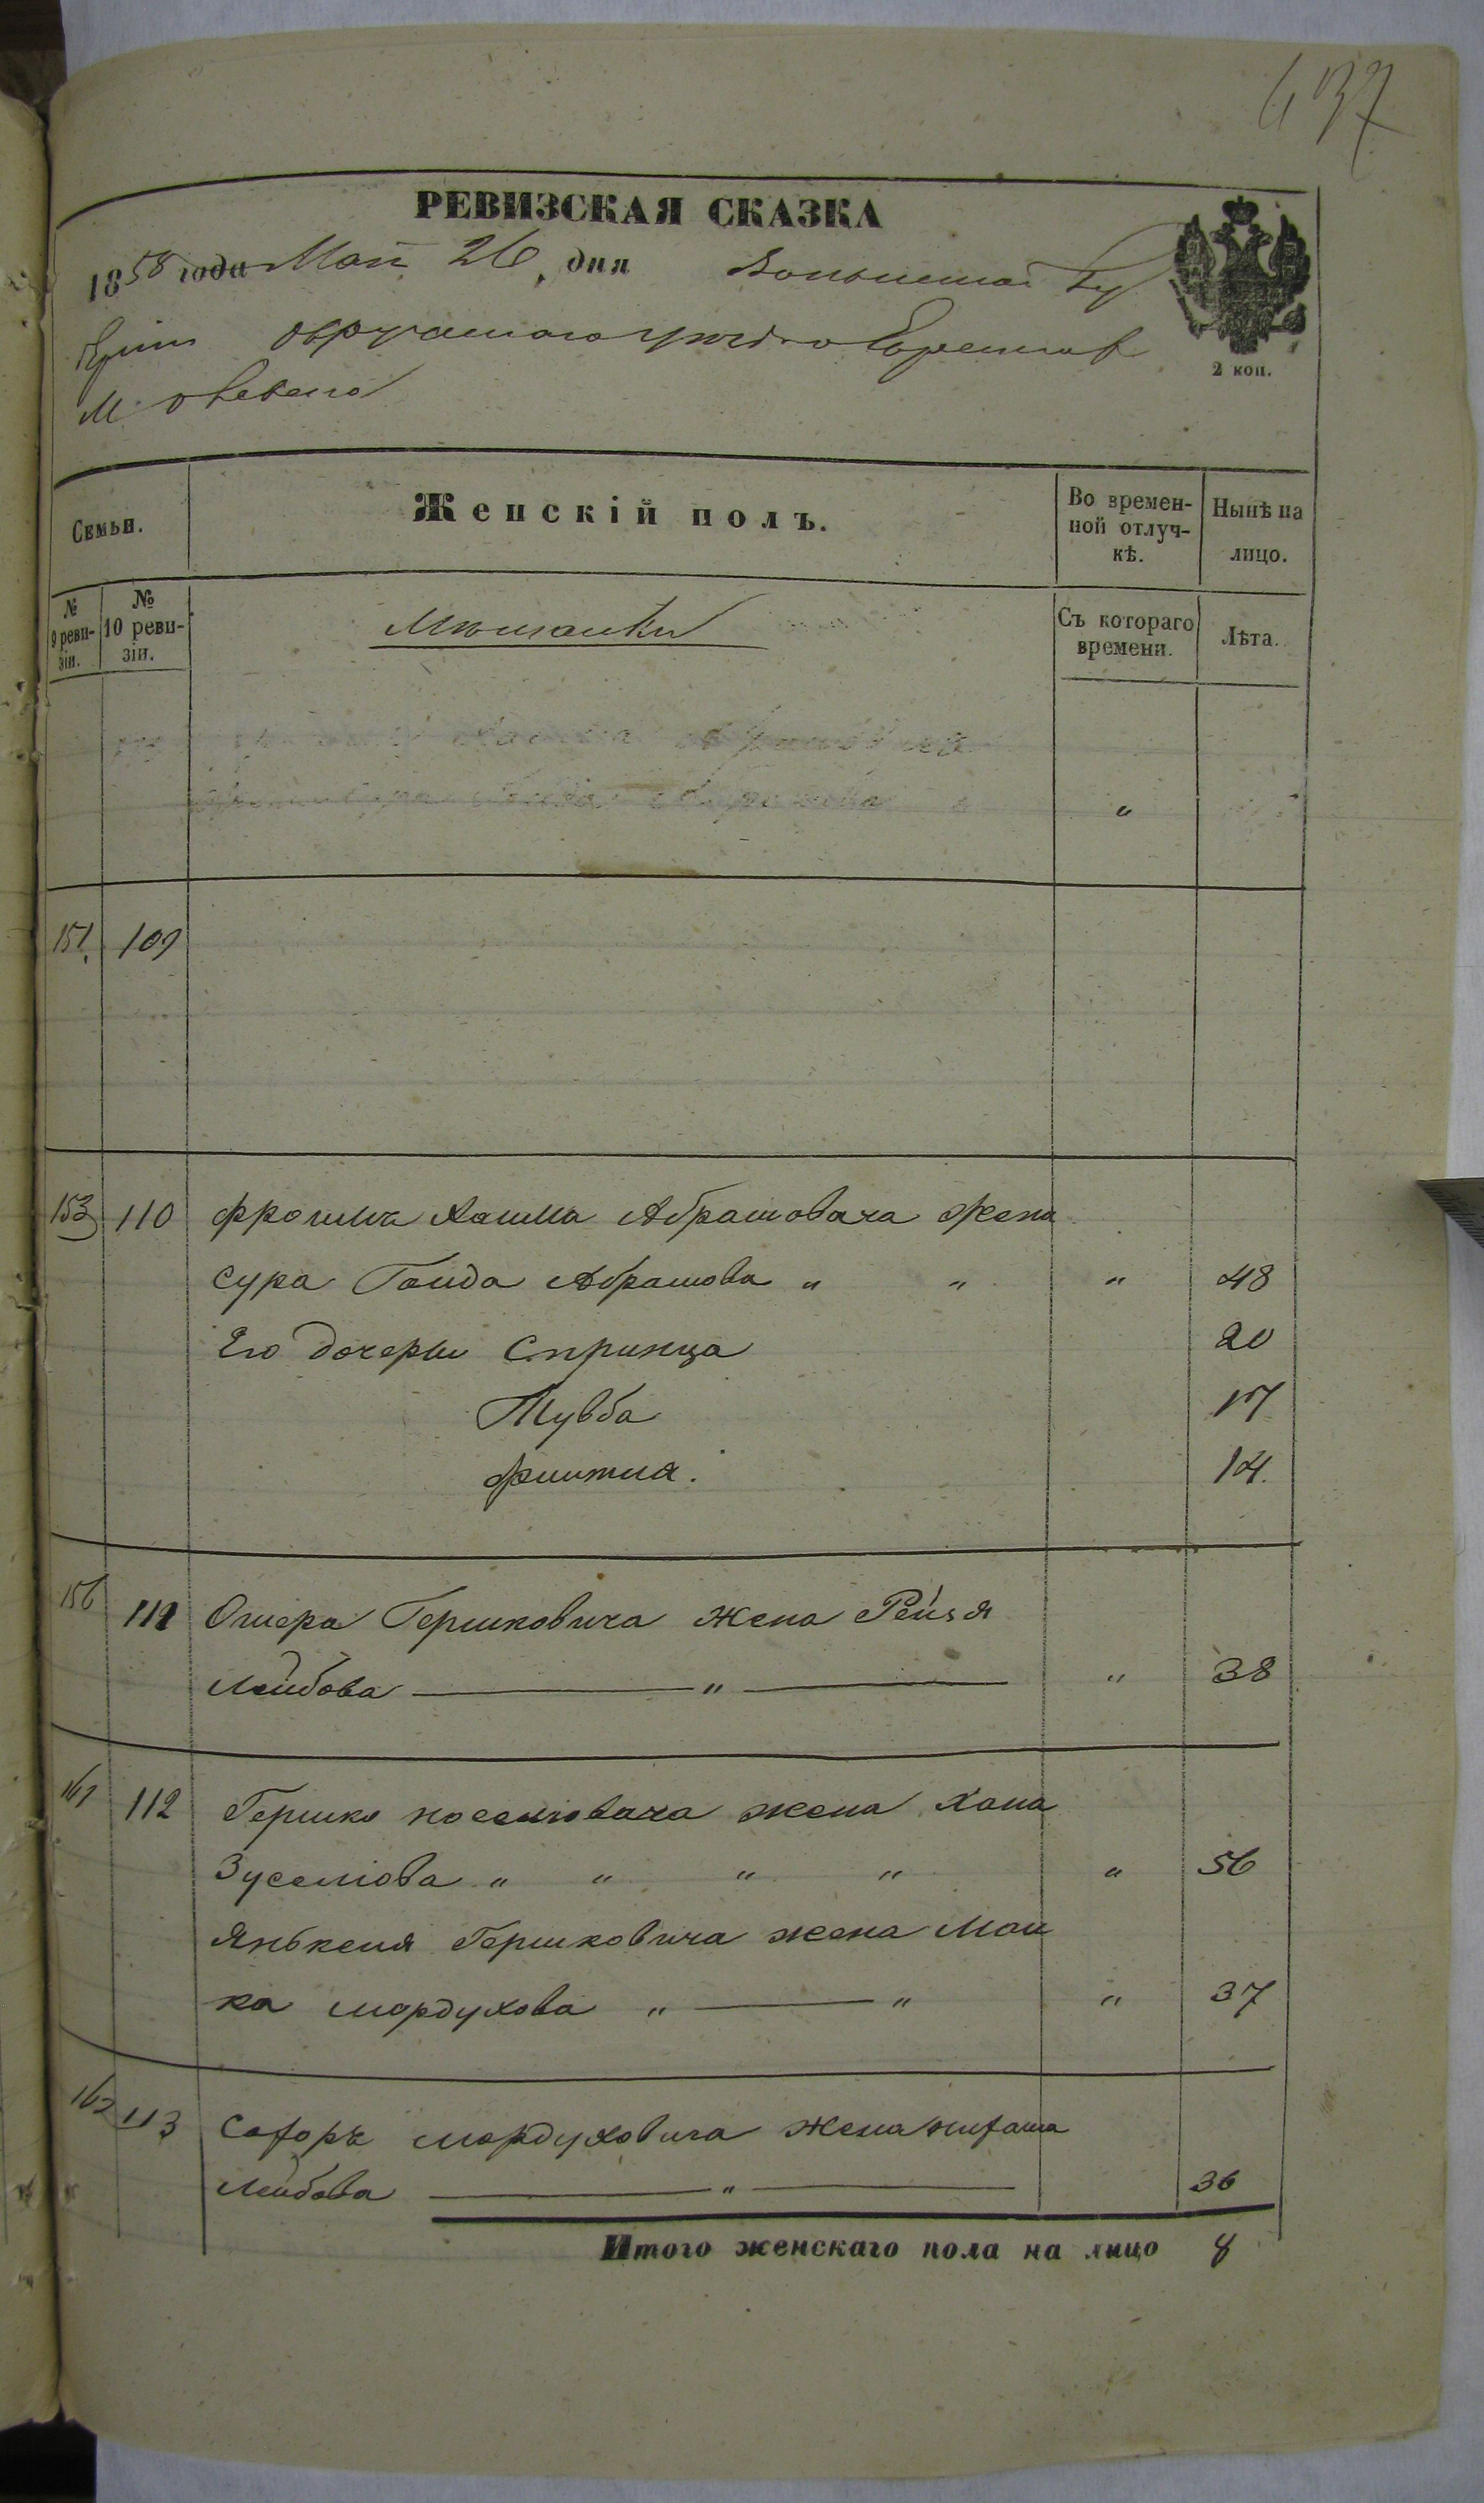 437
РЕВИЗСКАЯ СКАЗКА
1858 года Мая 26 дня Волынской Гу
берніи Овручскаго уезда Евреевъ
М.
2 коп.
Семьи.
Женскій полъ.
Во времен-
ной отлуч-
кѣ.
Нынѣ на
лицо.
№
9 реви-
зіи.
№
10 реви-
зіи.
Мѣщанки
Съ котораго
времени.
Лѣта.
"
151. 109
153 110 Фроима Хаима Абрамовича жена
Сура Гоида Абрамова " " " 48
Его дочеры Спринца 20
Тувба 17
14.
156 111 Ошера Гершковича жена Рейзя
Лейбова " " 38
161 112 Гершко жена Хана
Зуселіова " " " " " 56
Янькеля Гершковича жена Мал
ка Мордухова " " " 37
162 113 Мордуховича жена
Лейбова " 36
Итого женскаго пола на лицо 8